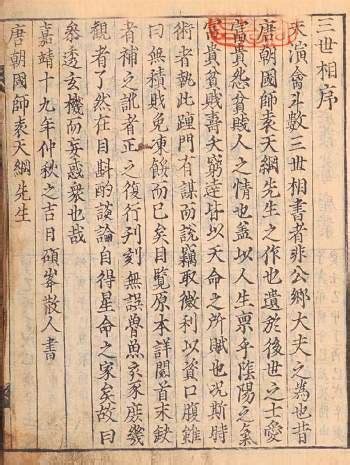 三世相序
夫演禽斗數三世相書者非公卿大夫之為也昔
唐朝國師袁天綱先生之作也遺於後世之士愛
富貴怨貧賤人之情也蓋以人生禀乎陰陽之氣
富貴貧賤壽夭窮達皆以天命之所賦也況斯時
術者執此踵門有謀而說竊取微利以資口腹雖
曰無積賊免凍餒而已矣目覽原本詳閱首末缺
者補之訛者正之復行刊刻無誤魯魚亥豕庶幾
觀者了然在目斟酌談論自得星命之家矣故曰
叅透玄機而妄惑衆也哉
嘉靖十九年仲秋之吉日碩峯散人書
唐朝國師袁天綱先生